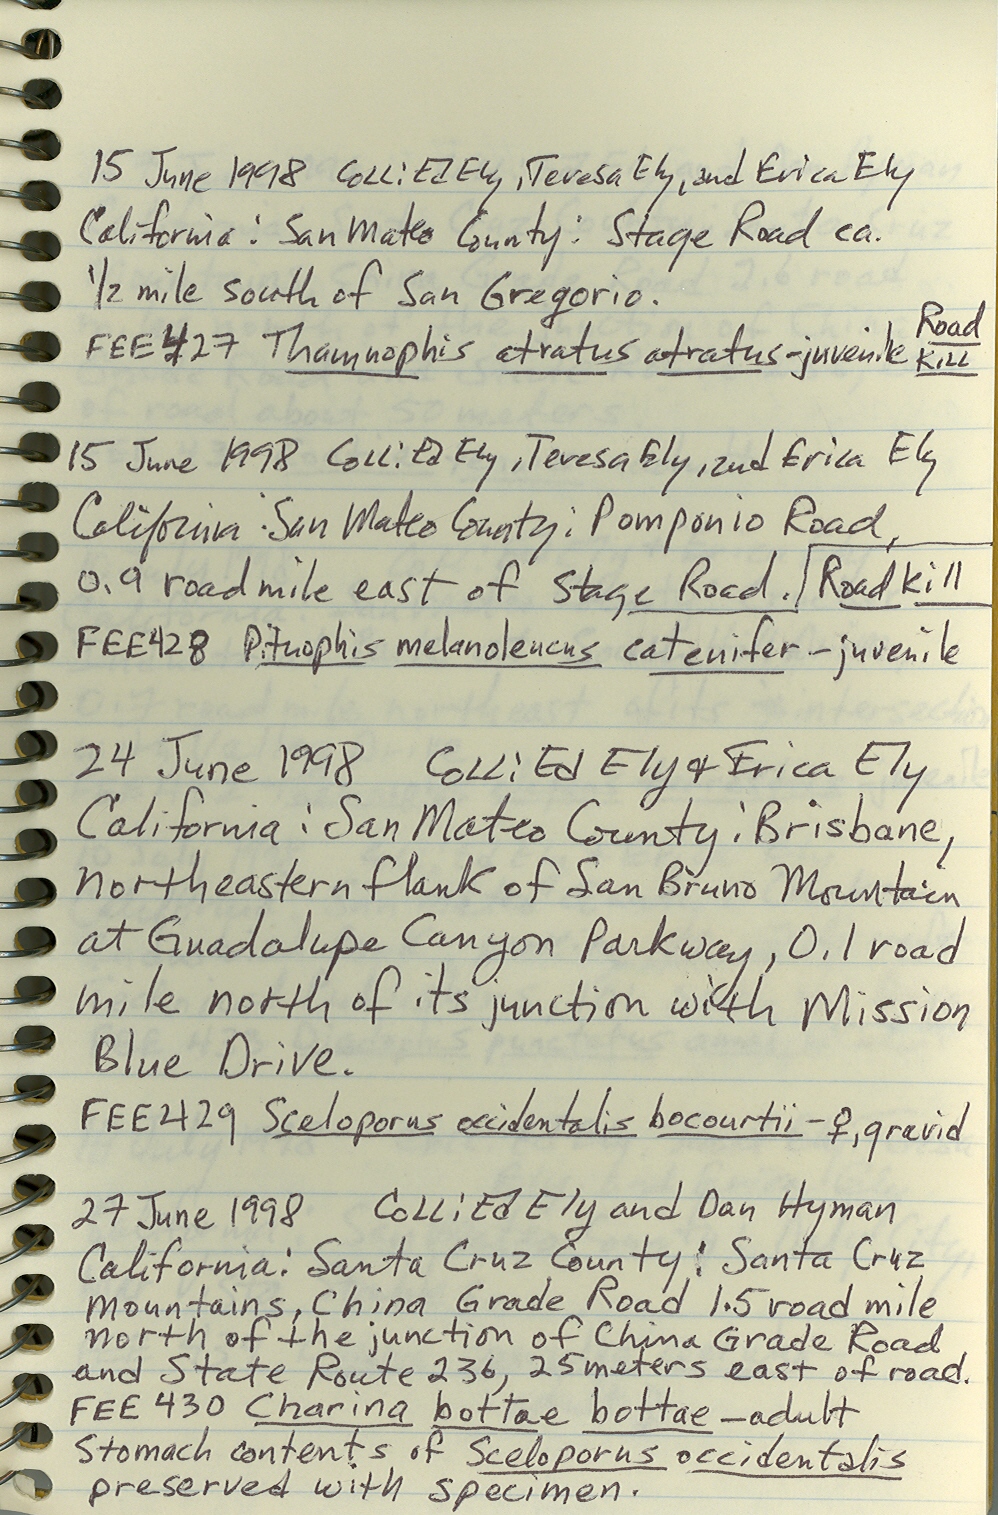 15 June 1998 Coll: Ed Ely, Teresa Ely, and Erica Ely
California: San Mateo County: Stage Road ca.
1/2 mile south of San Gregorio.
FEE427 Thamnophis atratus atratus-juvenile Road Kill
15 June 1998 Coll: Ed Ely, Teresa Ely, and Erica Ely
California: San Mateo County: Pomponio Road,
0.9 road mile east of Stage Road. Road kill
FEE428 Pituophis melanoleucus catenifer - juvenile
24 June 1998 Coll: Ed Ely & Erica Ely
California: San Mateo County: Brisbane,
northeastern flank of San Bruno Mountain
at Guadalupe Canyon Parkway, 0.1 road
mile north of its junction with Mission
Blue Drive.
FEE429 Sceloporus occidentalis bocourtii - ♀, gravid
27 June 1998 Coll: Ed Ely and Dan Hyman
California: Santa Cruz County: Santa Cruz
Mountains, China Grade Road 1.5 road mile
north of the junction of China Grade Road
and State Route 236, 25 meters east of road.
FEE 430 Charina bottae bottae - adult
Stomach contents of Sceloporus occidentalis
preserved with specimen.